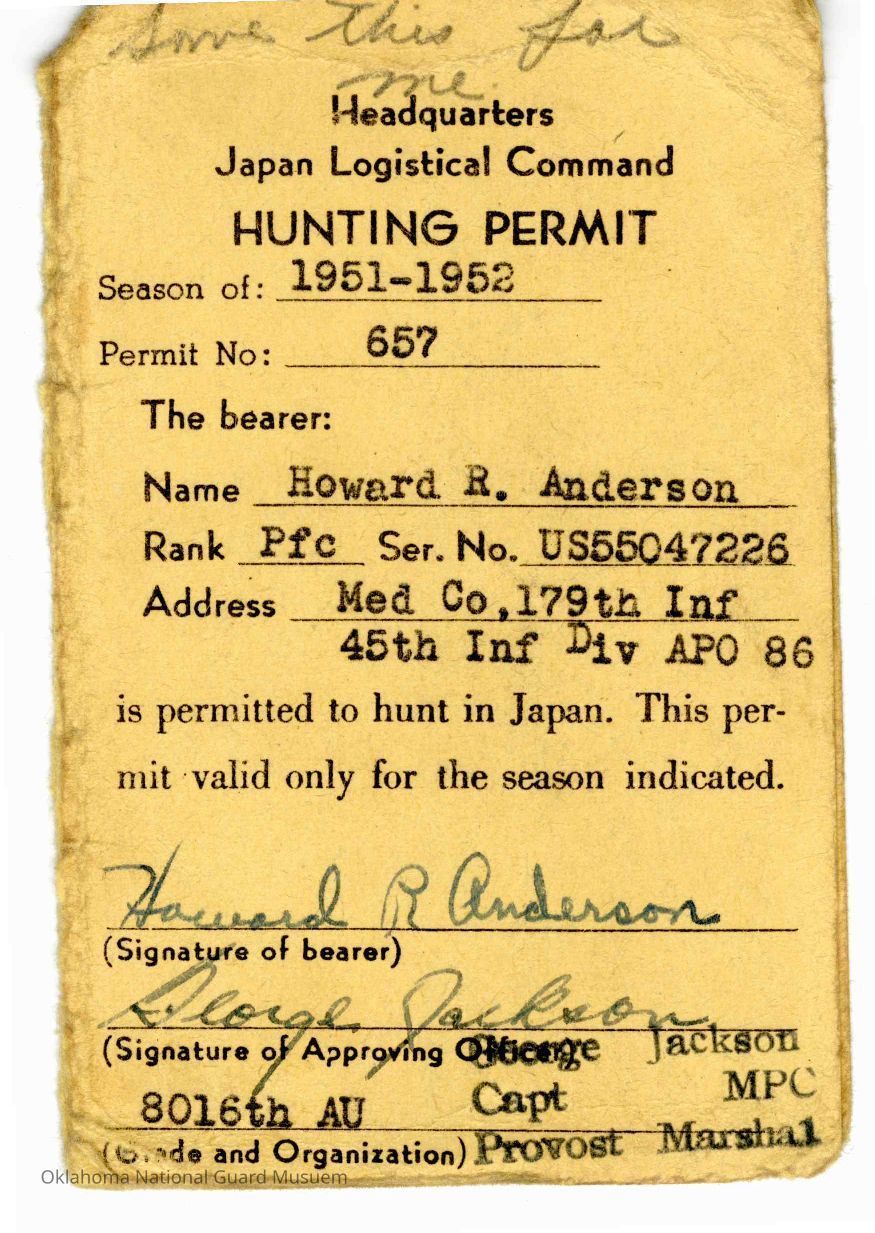 Save this for
me.
Headquarters
Japan Logistical Command
HUNTING PERMIT
Season of: 1951-1952
Permit No: 657
The bearer:
Name Howard R. Anderson
Rank Pfc Ser. No. US55047226
Address Med Co,179th Inf
45th Inf Div APO 86
is permitted to hunt in Japan. This per-
mit valid only for the season indicated.
Howard R Anderson
(Signature of bearer)
George Jackson
(Signature of Approving Officer)
George Jackson
8016th AU Capt MPC
(Grade and Organization) Provost Marshal
Oklahoma National Guard Musuem